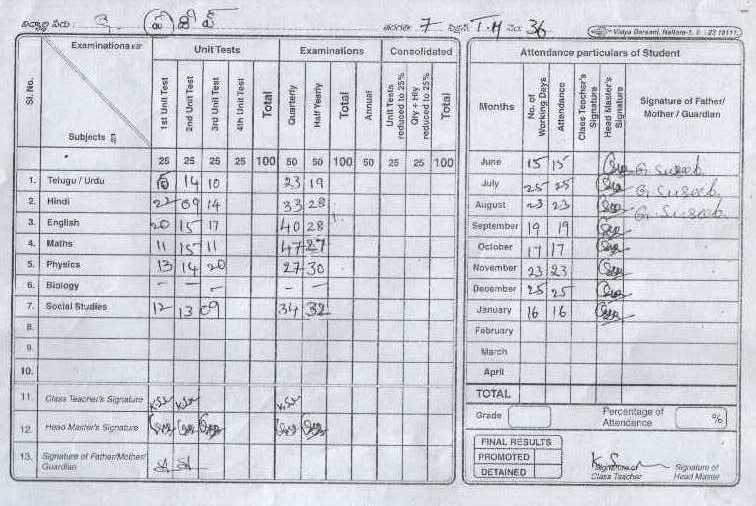 7 T.M 36
Vidya Darsani, Nellore-1,
Examinations
Unit Tests Examinations Consolidated
Sl. No. Subjects 1st Unit Test 2nd Unit Test 3rd Unit Test 4th Unit Test Total Quarterly Half Yearly Total Annual Unit Tests reduced to 25% Qly + Hly reduced to 25% Total
25 25 25 25 100 50 50 100 50 25 25 100
1. Telugu / Urdu 14 10 23 19
2. Hindi 22 09 14 33 28
3. English 20 15 17 40 28
4. Maths 11 15 11 47 27
5. Physics 13 14 20 27 30
6. Biology – – – – –
7. Social Studies 12 13 09 34 32
8.
9.
10.
11. Class Teacher's Signature
12. Head Master's Signature
13. Signature of Father/Mother/
Guardian
Attendance particulars of Student
Months No. of Working Days Attendance Class Teacher's Signature Head Master's Signature Signature of Father/ Mother / Guardian
June 15 15
July 25 25
August 23 23
September 19 19
October 17 17
November 23 23
December 25 25
January 16 16
February
March
April
TOTAL
Grade Percentage of Attendance %
FINAL RESULTS
PROMOTED
DETAINED
Signature of Class Teacher Signature of Head Master